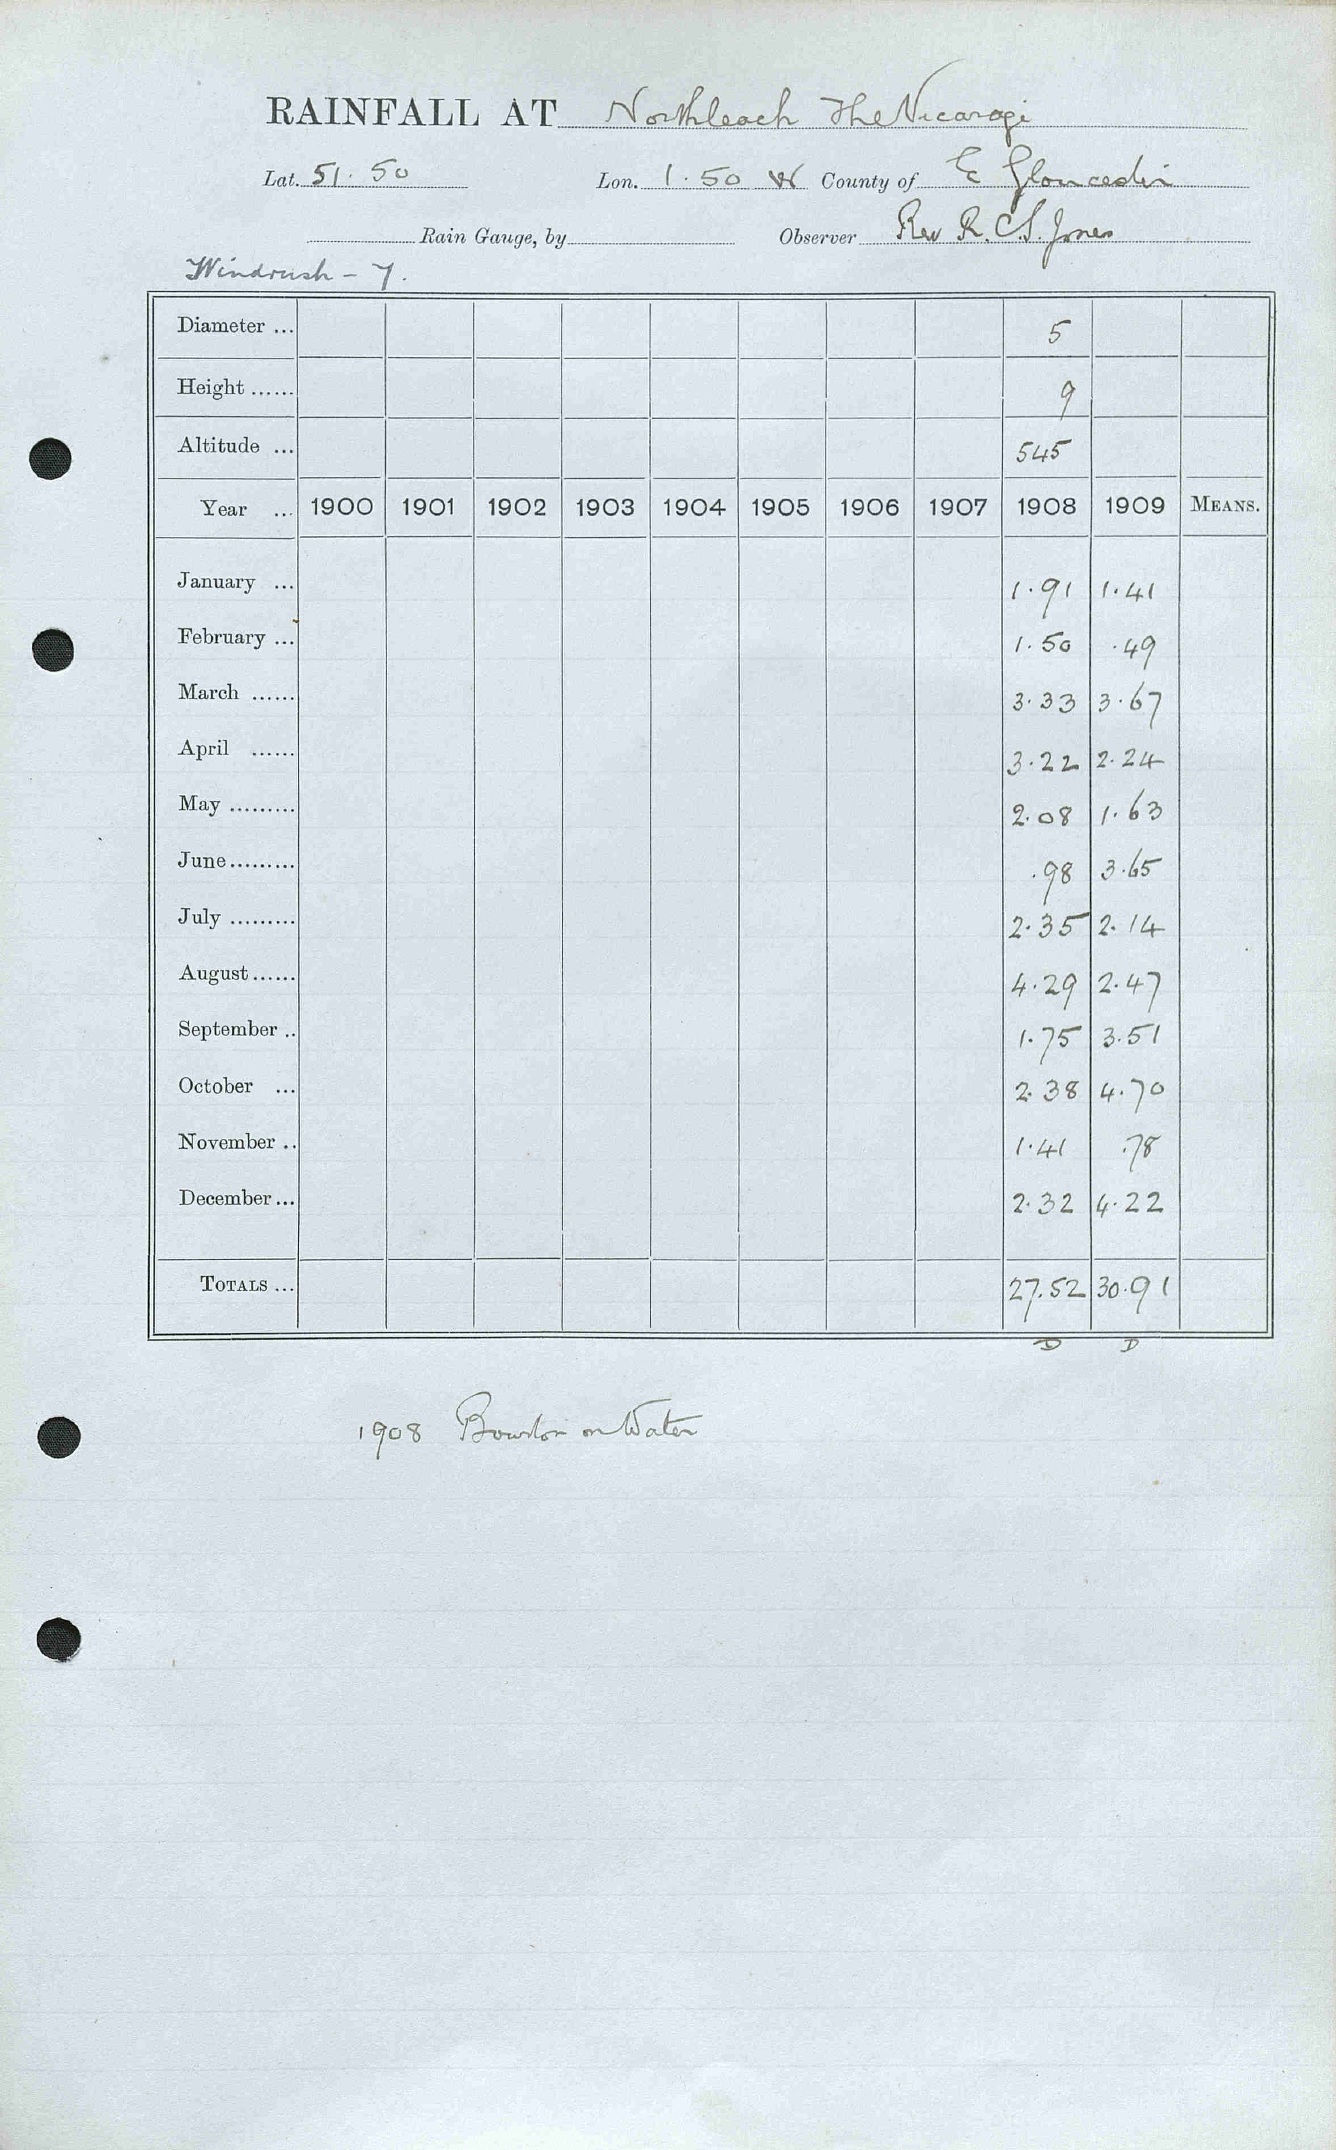 RAINFALL AT Northleach The Vicarage
Lat. 51.50 Lon. 1.50 W County of E Gloucester
Rain Gauge, by Observer Rev R.C.S. Jones
Windrush - 7.
Diameter ... 5
Height ...... 9
Altitude ... 545
Year ... 1900 1901 1902 1903 1904 1905 1906 1907 1908 1909 MEANS.
January ... 1.91 1.41
February ... 1.50 .49
March ...... 3.33 3.67
April ...... 3.22 2.24
May ......... 2.08 1.63
June ......... .98 3.65
July ......... 2.35 2.14
August ...... 4.29 2.47
September .. 1.75 3.51
October ... 2.38 4.70
November .. 1.41 .78
December ... 2.32 4.22
TOTALS ... 27.52 30.91
D D
1908 Bourton on Water